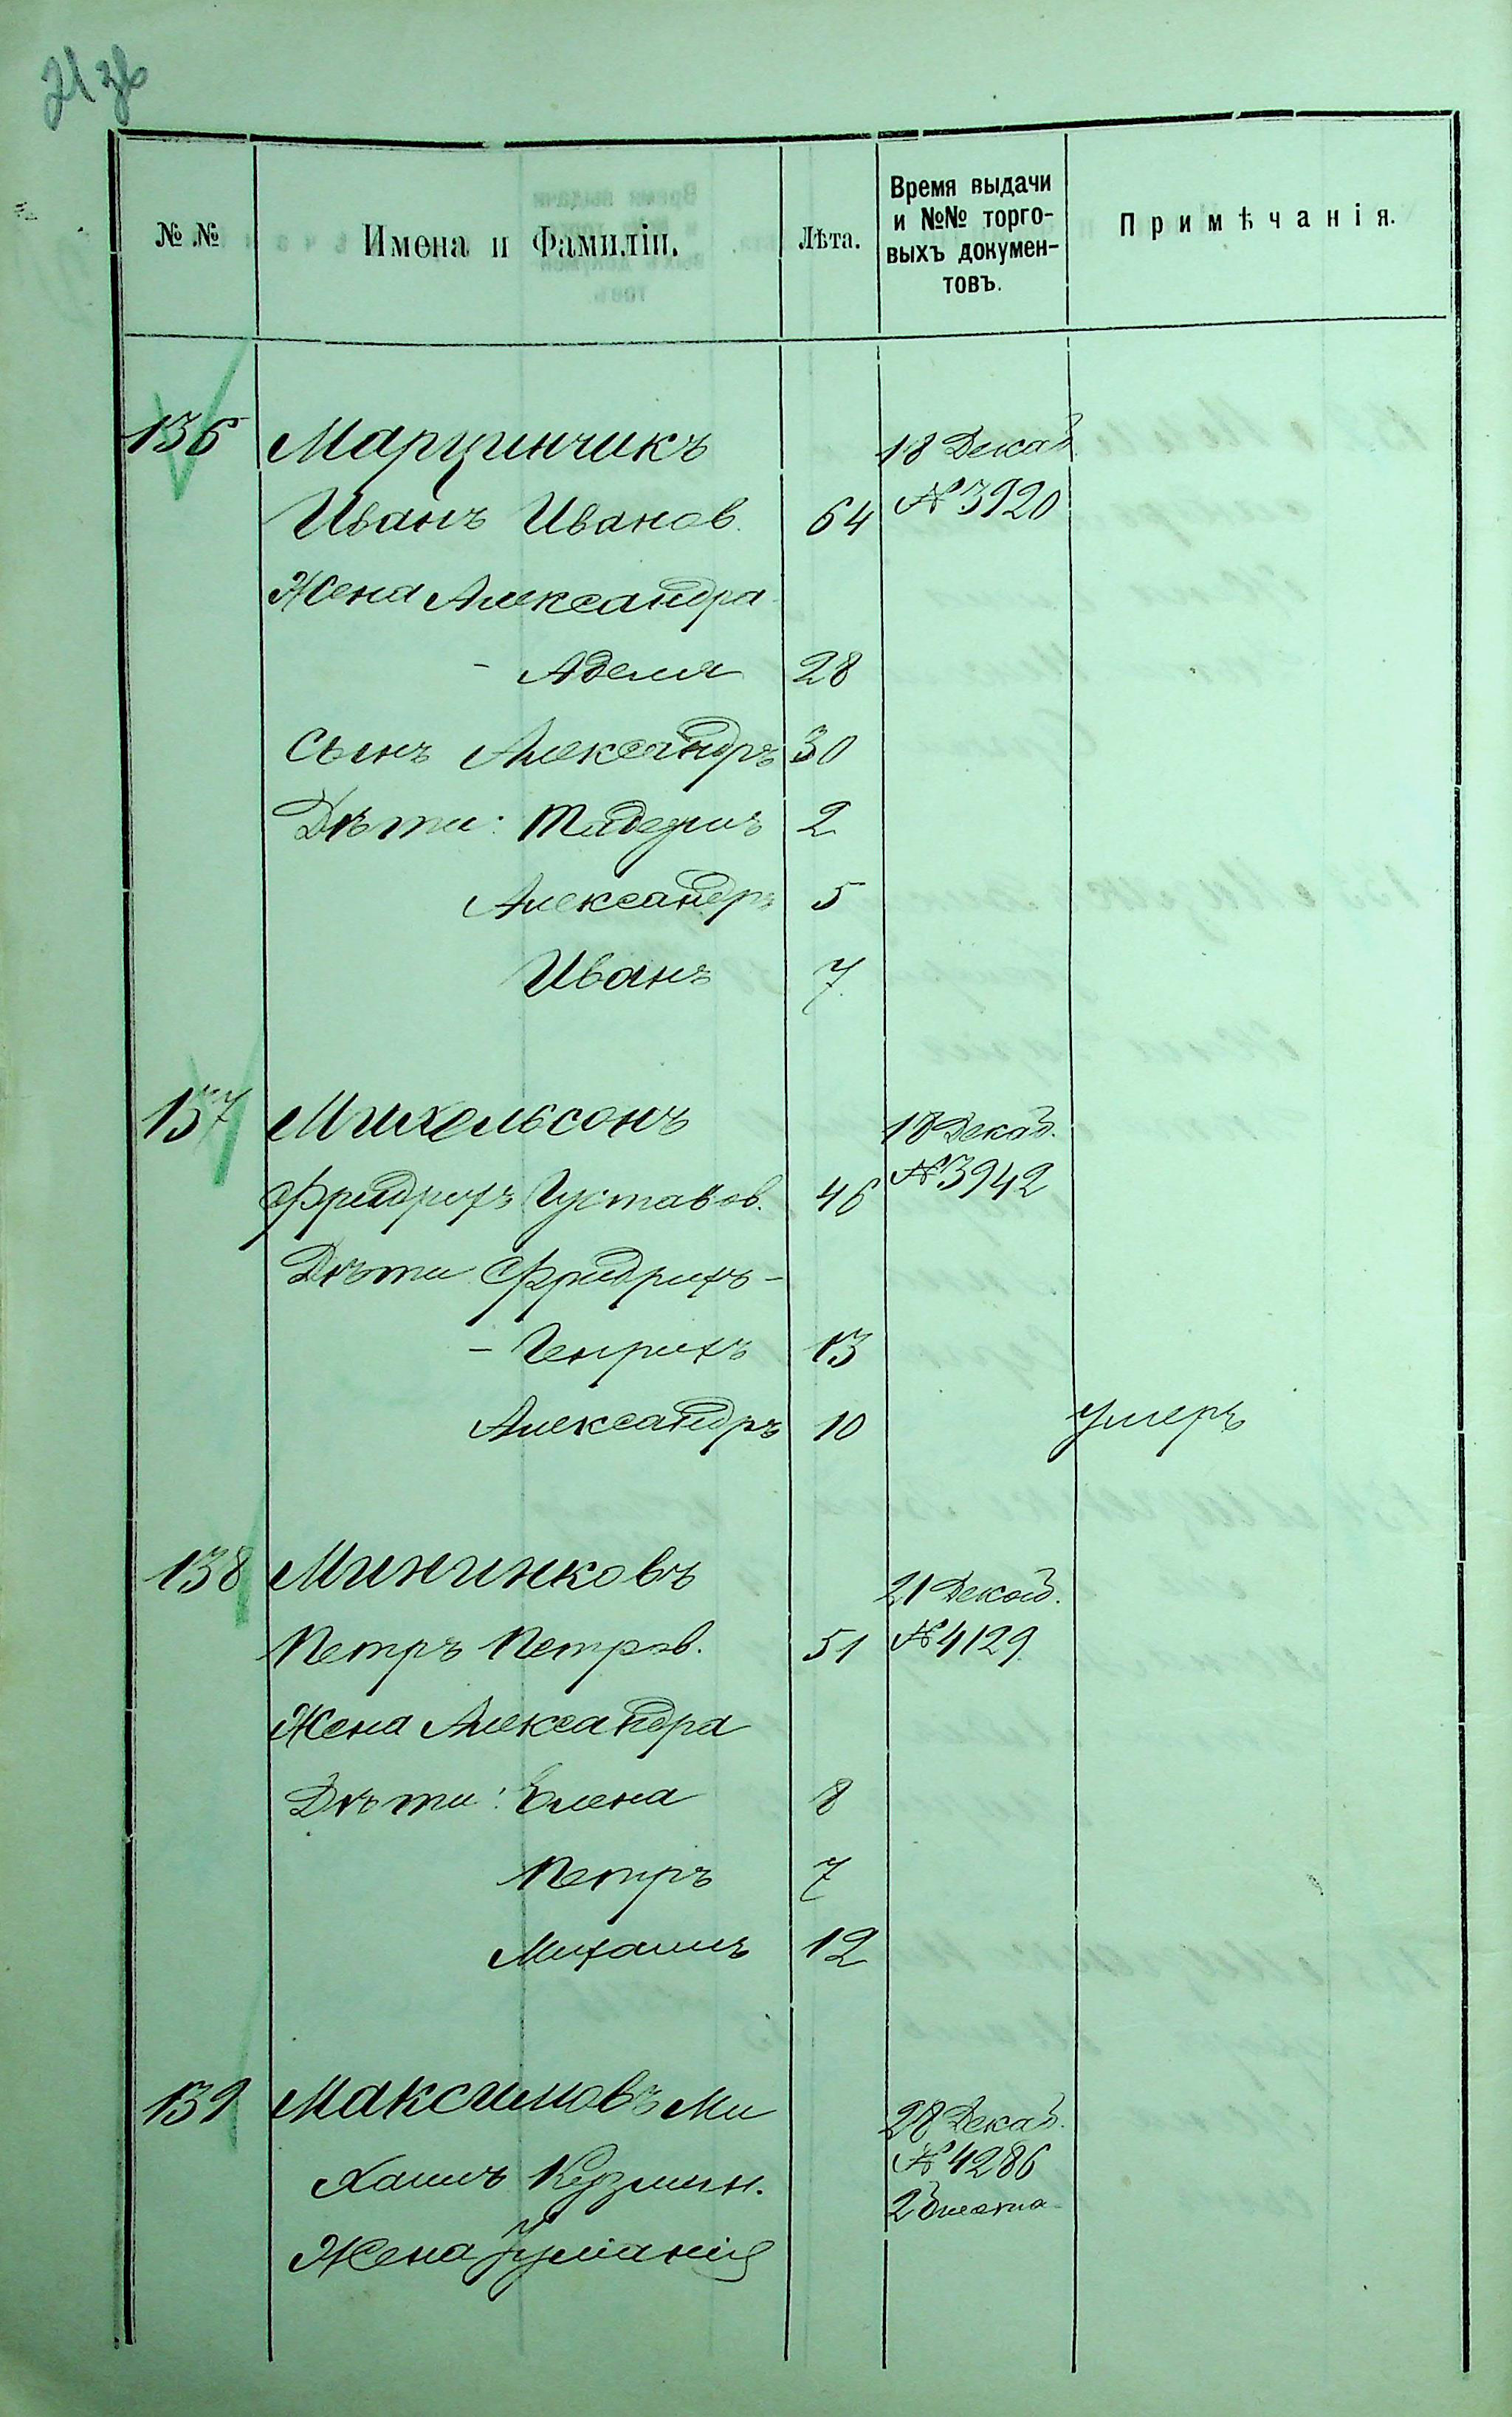 № №
Имена и Фамиліи.
Лѣта.
Время выдачи
и №№ торго-
выхъ докумен-
товъ.
Примѣчанія.
136 Марцинчикъ 18 Декаб
Иванъ Иванов. 64 № 3920
Жена Александра
- Аделя 28
Сынъ Александръ 30
Дѣти: Тадеушъ 2
Александръ 5
Иванъ 7.
137 Михельсонъ 18 Декаб.
Фридрихъ Густавов. 46 № 3942
Дѣти Фридрихъ -
- Генрихъ 13
Александръ 10 умеръ
138 Мининковъ 21 Декаб.
Петръ Петров. 51 № 4129
Жена Александра
Дѣти: Елена 8
Петръ 7
Михаилъ 12
139 Максимовъ Ми 28 Декаб.
хаилъ Кузмин. № 4286
Жена Іуліанія